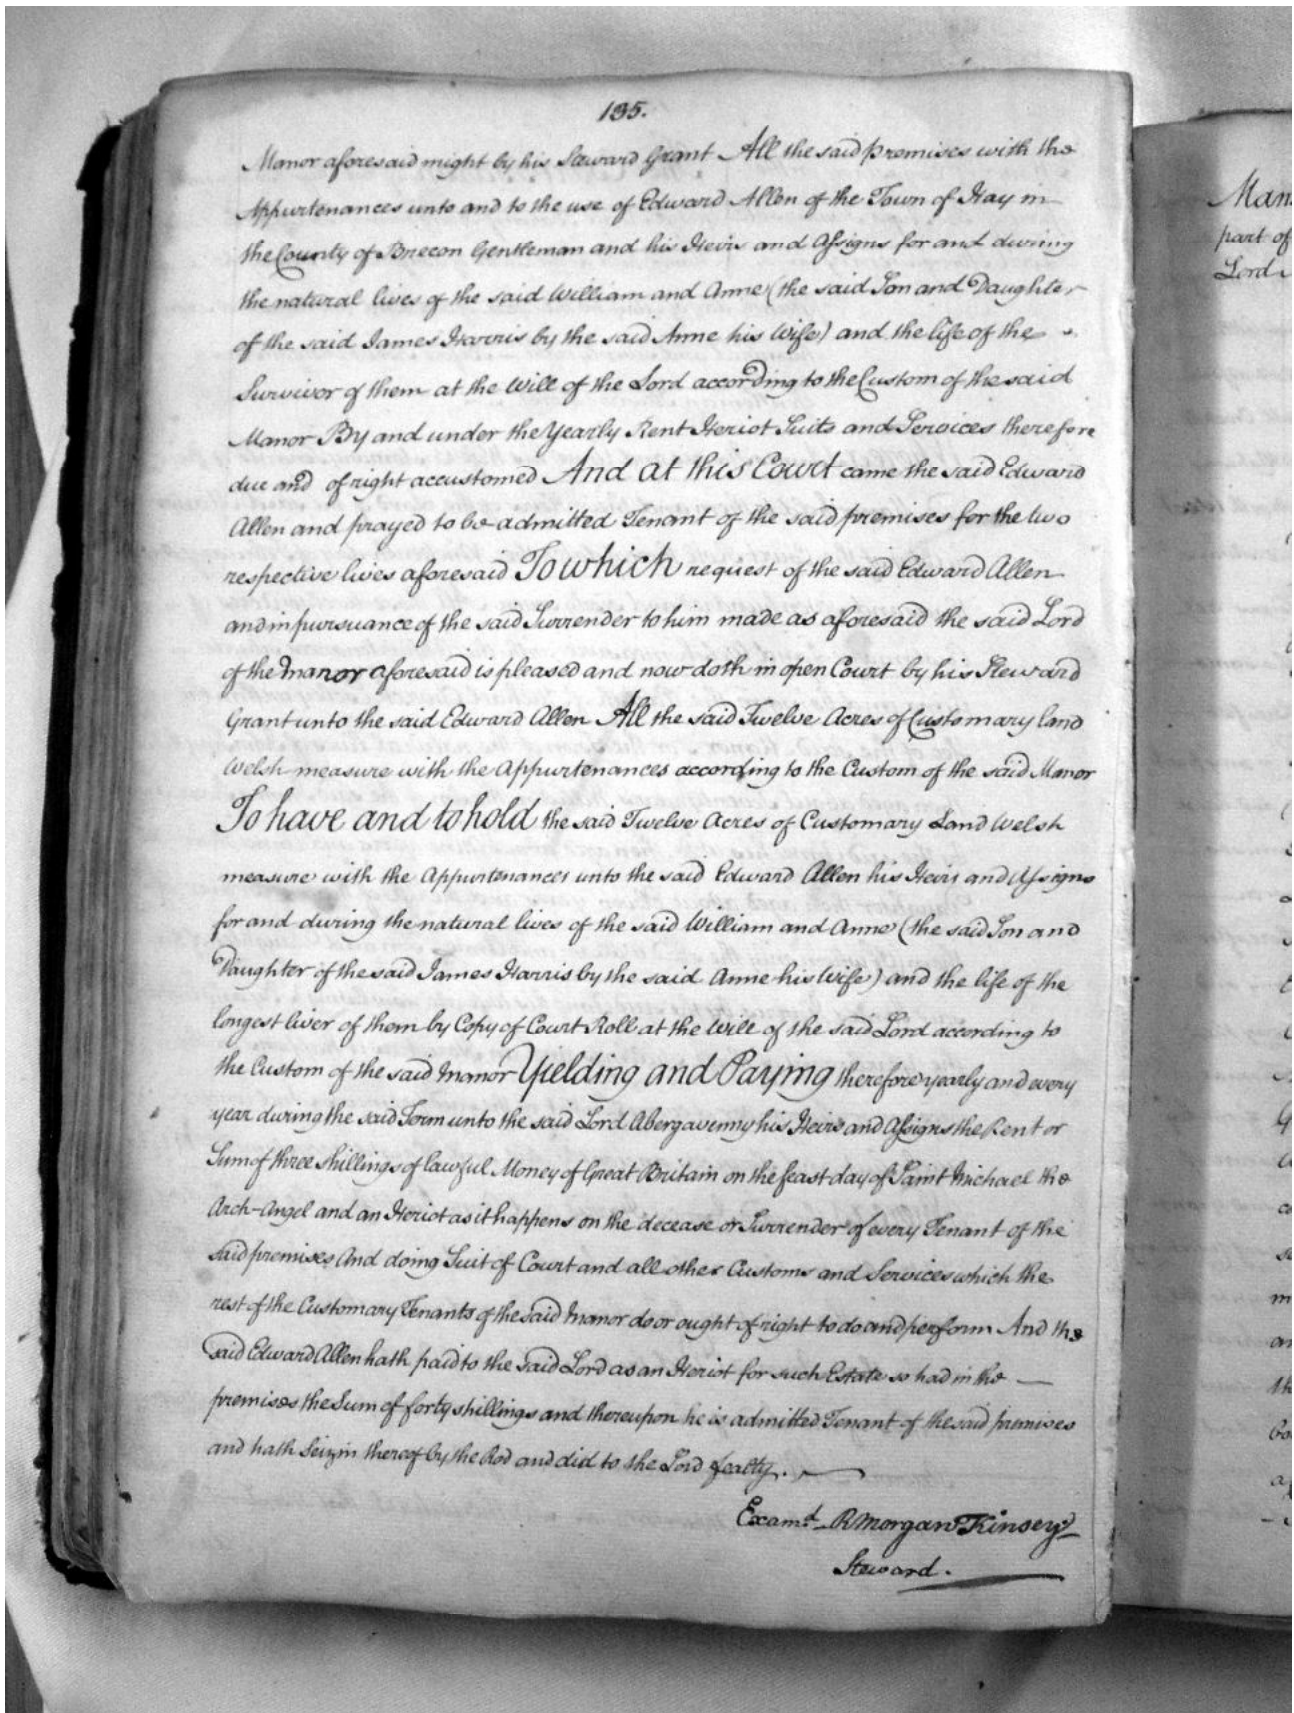 135.
Manor aforesaid might by his Steward Grant All the said premises with the
Appurtenances unto and to the use of Edward Allen of the Town of Hay in
the County of Brecon Gentleman and his Heirs and Assigns for and during
the natural lives of the said William and Anne (the said Son and Daughter
of the said James Harris by the said Anne his Wife) and the life of the
Survivor of them at the Will of the Lord according to the Custom of the said
Manor By and under the Yearly Rent Heriot Suits and Services therefore
due and of right accustomed And at this Court came the said Edward
Allen and prayed to be admitted Tenant of the said premises for the two
respective lives aforesaid To which request of the said Edward Allen
and in pursuance of the said Surrender to him made as aforesaid the said Lord
of the Manor aforesaid is pleased and now doth in open Court by his Steward
Grant unto the said Edward Allen All the said Twelve Acres of Customary land
Welsh measure with the Appurtenances according to the Custom of the said Manor
To have and to hold the said Twelve Acres of Customary Land Welsh
measure with the Appurtenances unto the said Edward Allen his Heirs and Assigns
for and during the natural lives of the said William and Anne (the said Son and
Daughter of the said James Harris by the said Anne his Wife) and the life of the
longest liver of them by Copy of Court Roll at the Will of the said Lord according to
the Custom of the said Manor Yielding and Paying therefore yearly and every
year during the said Term unto the said Lord Abergavenny his Heirs and Assigns the Rent or
Sum of three shillings of lawful Money of Great Britain on the feast day of Saint Michael the
Arch-Angel and an Heriot as it happens on the decease or Surrender of every Tenant of the
said premises And doing Suit of Court and all other Customs and Services which the
rest of the Customary Tenants of the said Manor do or ought of right to do and perform And the
said Edward Allen hath paid to the said Lord as an Heriot for such Estate so had in the
premises the Sum of forty shillings and thereupon he is admitted Tenant of the said premises
and hath Seizin thereof by the Rod and did to the Lord fealty.
Examd. R Morgan Kinsey
Steward.
part of
Lord